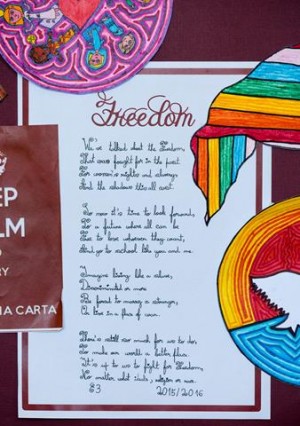 Freedom
We've talked about the Freedom,
That was fought for in the past
For women's rights and slavery
And the this all cost.
So now it's time to look forwards,
To a future where all can be
Free to love whoever they want,
And go to school like you and me.
Imagine living like a slave,
Discriminated or more
Be forced to marry a stranger,
Or live in a place of war.
There's still so much for us to do,
To make our world a better place
It's up to us to fight for Freedom,
No matter what religion or race.
E3 2015/2016
EEP
LM
RY
A CARTA